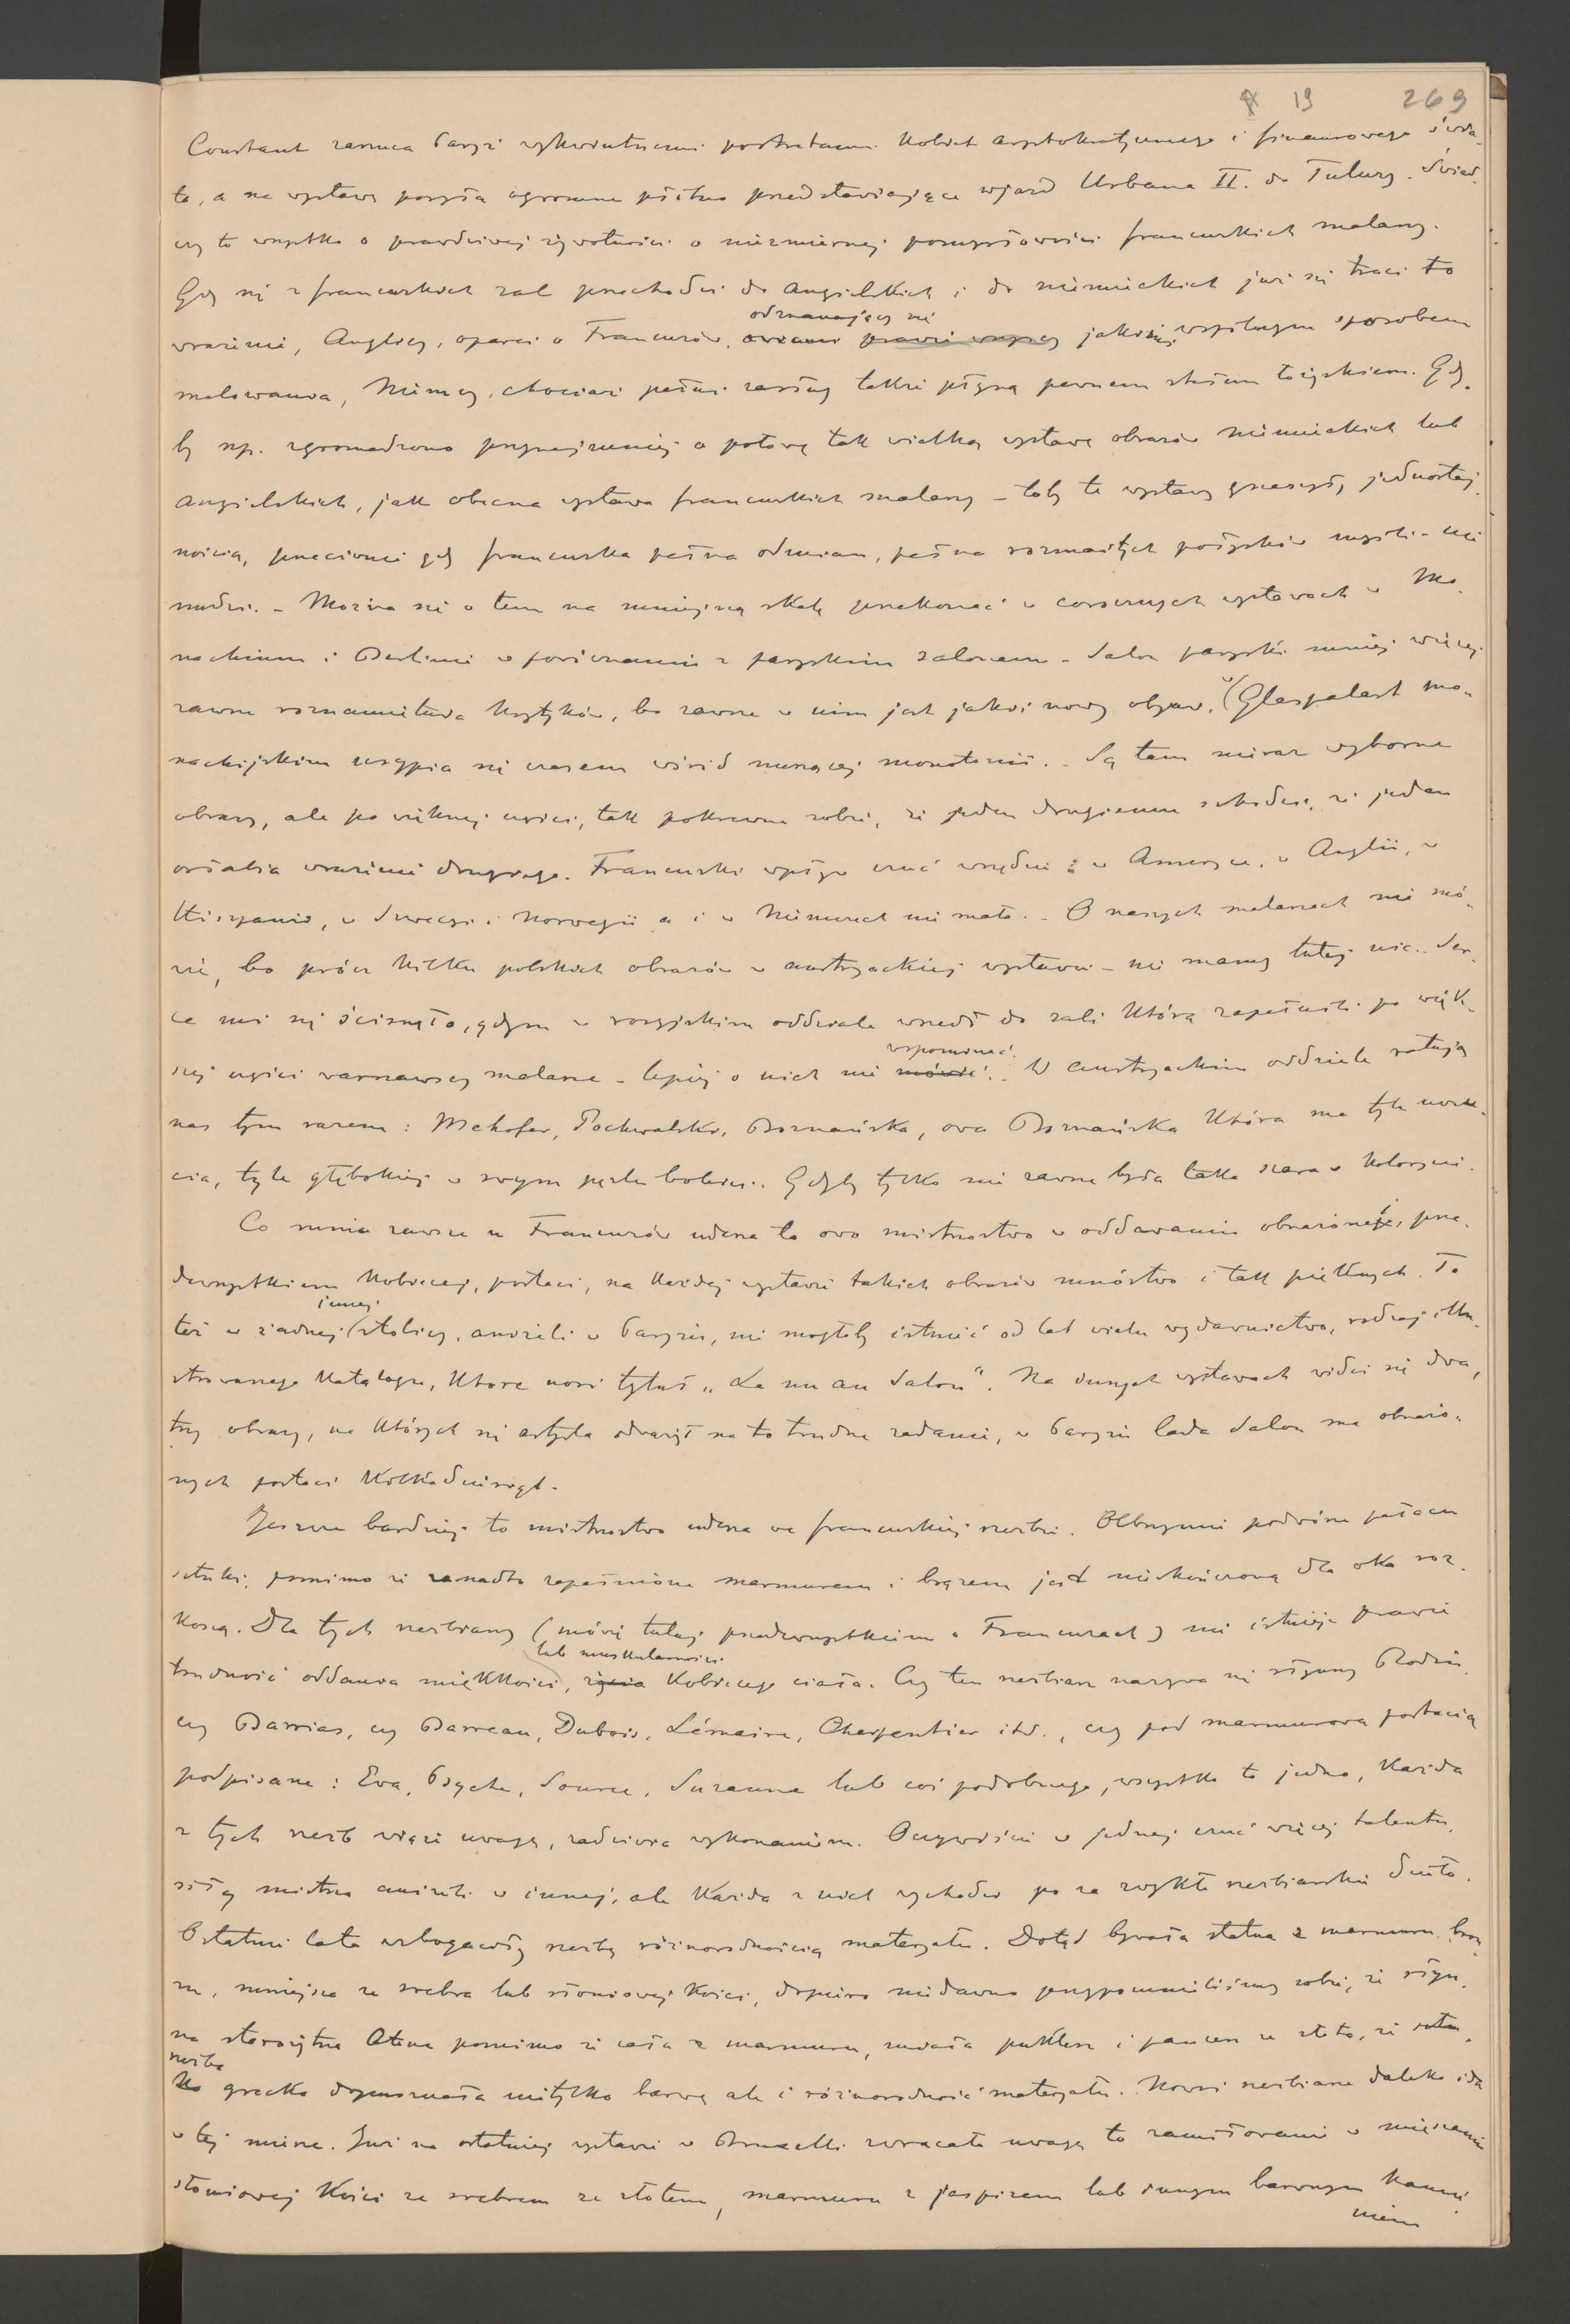 19 269
Constant zarzuca Paryż wykwintnemi portretami kobiet arystokratycznego i finansowego świa-
ta, a na wystawę posyła ogromne płótno przedstawiające wjazd Urbana II. do Tuluzy. Świad-
czy to wszystko o prawdziwej żywotności o niezmiernej pomysłowości francuskich malarzy.
Gdy się z francuskich sal przechodzi do angielskich i do niemieckich już się traci to
odznaczający się
wrażenie, Anglicy, oparci o Francuzów, prawie wszyscy jakimś wspólnym sposobem
malowania, Niemcy, chociaż pełni zasług także płyną pewnem stałem łożyskiem. Gdy-
by np. zgromadzono przynajmniej o połowę tak wielką wystawę obrazów niemieckich lub
angielskich, jak obecna wystawa francuskich malarzy – toby te wystawy grzeszyły jednostaj-
nością, przeciwnie gdy francuska pełna odmian, pełna rozmaitych połysków myśli – nie
nudzi. – Można się o tem na mniejszą skalę przekonać w corocznych wystawach w Mo-
nachium i Berlinie w porównaniu z paryskim salonem. Salon paryski mniej więcej
zawsze roznamiętnia krytyków, bo zawsze w nim jest jakiś nowy objaw, w Glaspalast mo-
nachijskim usypia się czasem wśród nużącej monotonii. – Są tam nieraz wyborne
obrazy, ale po większej części, tak pokrewne sobie, że jeden drugiemu szkodzi, że jeden
osłabia wrażenie drugiego. Francuski wpływ czuć wszędzie: w Ameryce, w Anglii, w
Hiszpanii, w Szwecyi i Norwegii a i w Niemczech nie mało. – O naszych malarzach nie mó-
wię, bo prócz kilku polskich obrazów w austryackiej wystawie – nie mamy tutaj nic. Ser-
ce mi się ścisnęło, gdym w rosyjskim oddziale wszedł do sali którą zapełnili po więk-
wspominać.
szej części warszawscy malarze – lepiej o nich nie mówić. W austryackim oddziele ratują
nas tym razem: Mehofer, Pochwalski, Boznańska, owa Boznańska która ma tyle uczu-
cia, tyle głębokiej w swym pęzlu boleści. Gdyby tylko nie zawsze była taka szara w kolorycie.
Co mnie zawsze u Francuzów uderza to owo mistrzostwo w oddawaniu obnażonej, prze-
dewszystkiem kobiecej, postaci, na każdej wystawie takich obrazów mnóstwo i tak pięknych. To
innej
też w żadnej stolicy, aniżeli w Paryżu, nie mogłoby istnieć od lat wielu wydawnictwo, rodzaj illu-
strowanego katalogu, które nosi tytuł „Le nu au Salon“. Na innych wystawach widzi się dwa,
trzy obrazy, na których się artysta odważył na to trudne zadanie, w Paryżu lada Salon ma obnażo-
nych postaci kilkadziesiąt.
Jeszcze bardziej to mistrzostwo uderza we francuskiej rzeźbie. Olbrzymie podwórze pałacu
sztuki, pomimo że zanadto zapełnione marmurem i brązem jest nieskończoną dla oka roz-
koszą. Dla tych rzeźbiarzy (mówię tutaj przedewszystkiem o Francuzach) nie istnieje prawie
lub muskularności
trudność oddania miękkości, życia kobiecego ciała. Czy ten rzeźbiarz nazywa się słynny Rodin,
czy Barrias, czy Barreau, Dubois, Lémaire, Charpentier itd., czy pod marmurową postacią
podpisane: Eva, Psyche, Source, Suzanne lub coś podobnego, wszystko to jedno, każda
z tych rzeźb więzi uwagę, zadziwia wykonaniem. Oczywiście w jednej czuć więcej talentu,
siłę mistrza aniżeli w innej, ale każda z nich wychodzi po za zwykłe rzeźbiarskie dzieło.
Ostatnie lata wzbogaciły rzeźbę różnorodnością materyału. Dotąd bywała statua z marmuru, bron-
zu, mniejsza ze srebra lub słoniowej kości, dopiero niedawno przypomnieliśmy sobie, że słyn-
na starożytna Atena pomimo że cała z marmuru, miała puklerz i pancerz ze złota, że sztu-
rzeźba
ka grecka dopuszczała nietylko barwę ale i różnorodność materyału. Nowsi rzeźbiarze daleko idą
w tej mierze. Już na ostatniej wystawie w Bruxelli zwracało uwagę to zamiłowanie w mięszaniu
słoniowej kości ze srebrem ze złotem, marmuru z jaspisem lub innym barwnym kamie-
niem